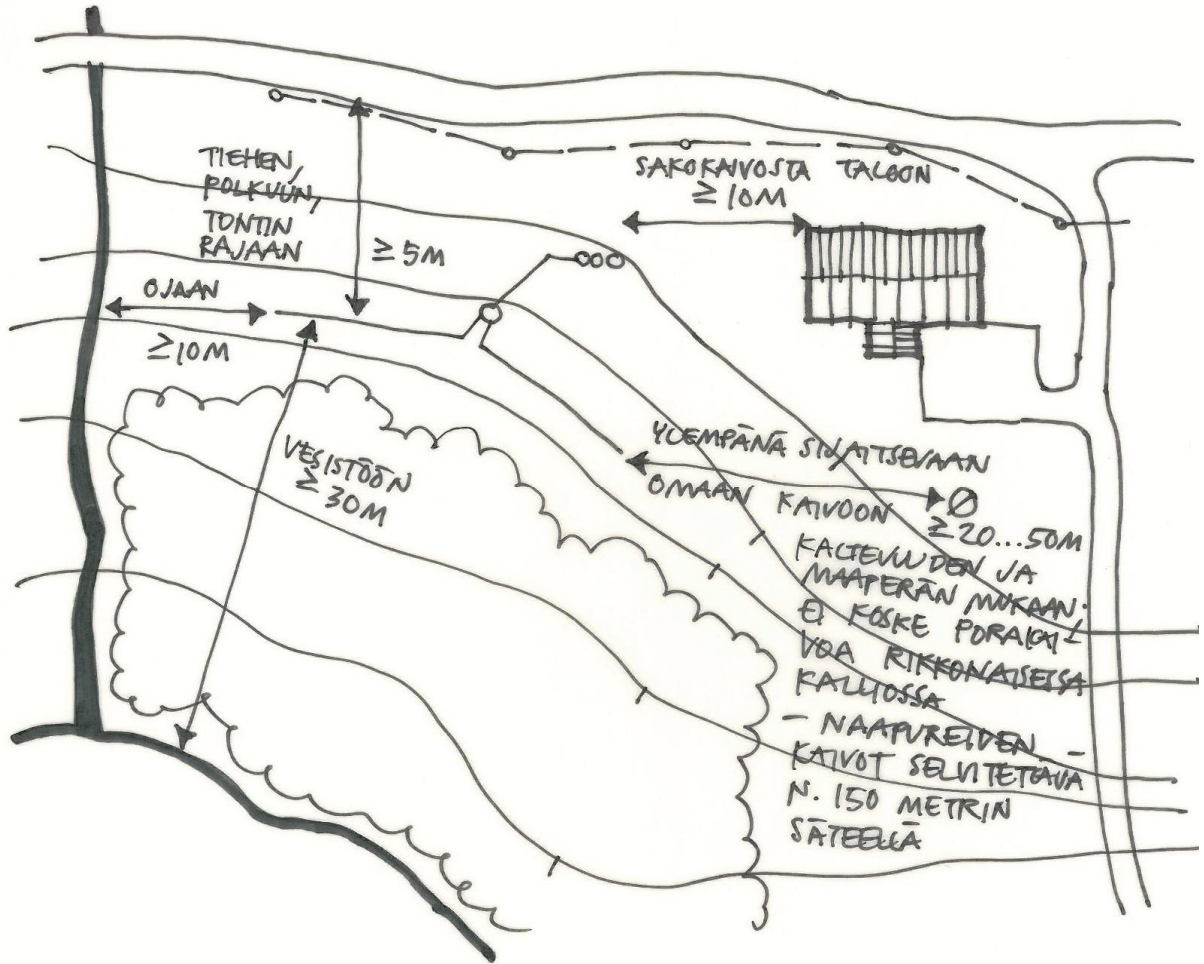 TIEHEN,
POLKUUN,
TONTIN
RAJAAN
≥ 5M
SAKOKAIVOSTA TALOON
≥ 10M
OJAAN
≥ 10M
VESISTÖÖN
≥ 30M
YLEMPÄNÄ SIJAITSEVAAN
OMAAN KAIVOON
≥ 20...50M
KALTEVUUDEN JA
MAAPERÄN MUKAAN!
EI KOSKE PORAKAI-
VOA RIKKONAISESSA
KALLIOSSA
- NAAPUREIDEN -
KAIVOT SELVITETTÄVÄ
N. 150 METRIN
SÄTEELLÄ